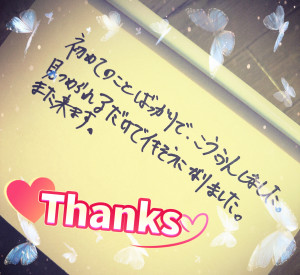 初めてのことばっかりで、こうふんしました。
見つめられるだけでイキそうになりました。
また来ます。
Thanks